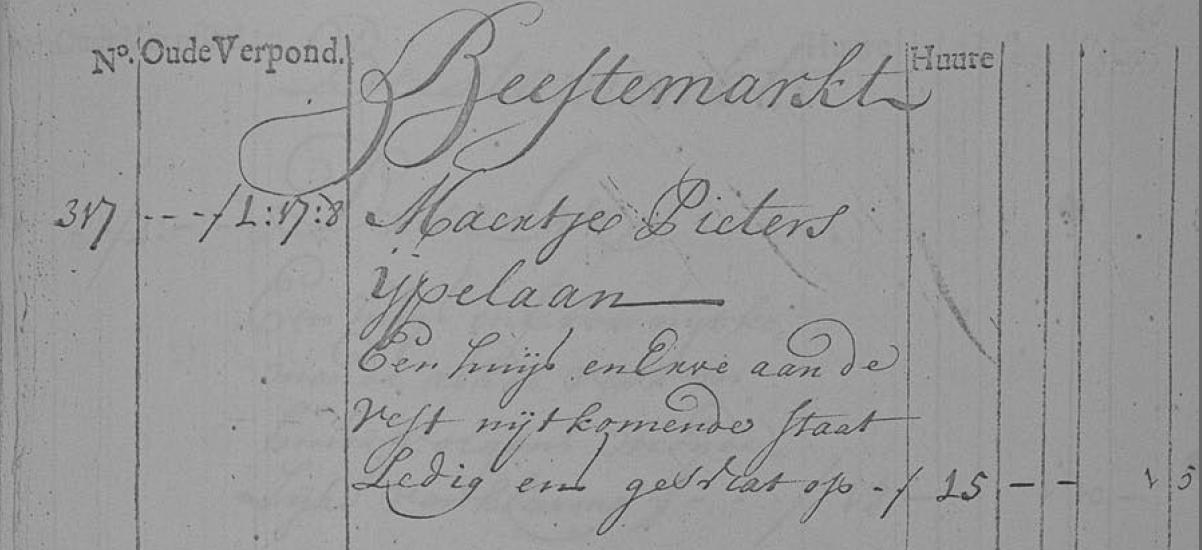 No. Oude Verpond. Beestemarkt Huure
317 - - - ƒ 1:17:8 Maertje Pieters
ijpelaan
Een huijs en Erve aan de
vest uijtkomende staat
Ledig en op - ƒ 15 - - 1 5